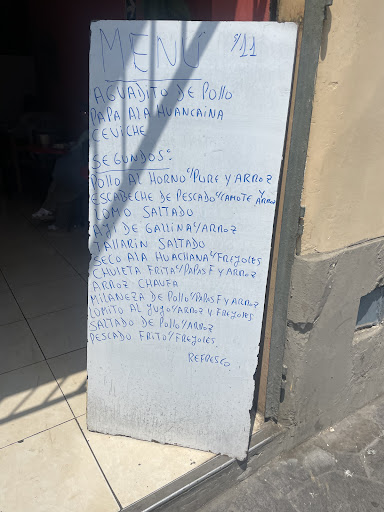 MENÚ $/11
AGUADITO DE POLLO
PAPA A LA HUANCAINA
CEVICHE
SEGUNDOS:
POLLO AL HORNO C/PURE Y ARROZ
ESCABECHE DE PESCADO C/CAMOTE Y ARROZ
LOMO SALTADO
AJI DE GALLINA C/ARROZ
TALLARIN SALTADO
SECO A LA HUACHANA C/FREJOLES
CHULETA FRITA C/PAPAS F Y ARROZ
ARROZ CHAUFA
MILANEZA DE POLLO C/PAPAS F Y ARROZ
LOMITO AL JUGO C/ARROZ Y FREJOLES
SALTADO DE POLLO C/ARROZ
PESCADO FRITO C/FREJOLES
REFRESCO